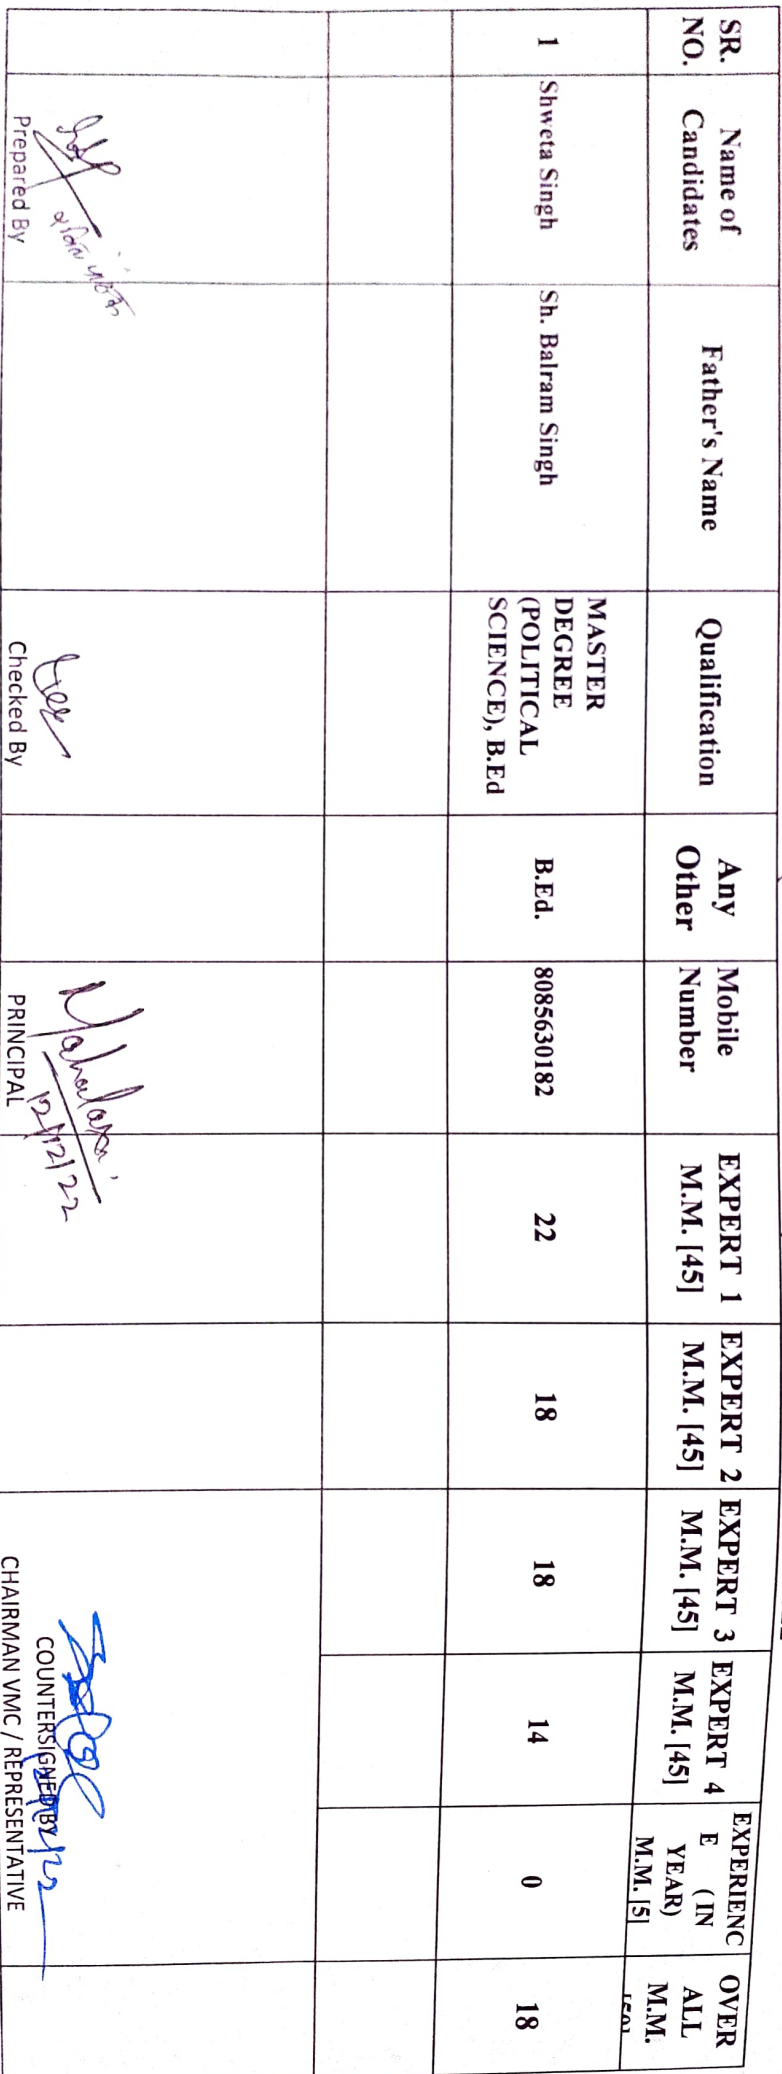 SR. NO.
Name of Candidates
Father's Name
Qualification
Any Other
Mobile Number
EXPERT 1 M.M. [45]
EXPERT 2 M.M. [45]
EXPERT 3 M.M. [45]
EXPERT 4 M.M. [45]
EXPERIENC E (IN YEAR) M.M. [5]
OVER ALL M.M. [50]
1
Shweta Singh
Sh. Balram Singh
MASTER
DEGREE
(POLITICAL
SCIENCE), B.Ed
B.Ed.
8085630182
22
18
18
14
0
18
Prepared By
Checked By
Mahalaxmi
12/12/22
PRINCIPAL
COUNTERSIGNED BY
CHAIRMAN VMC / REPRESENTATIVE